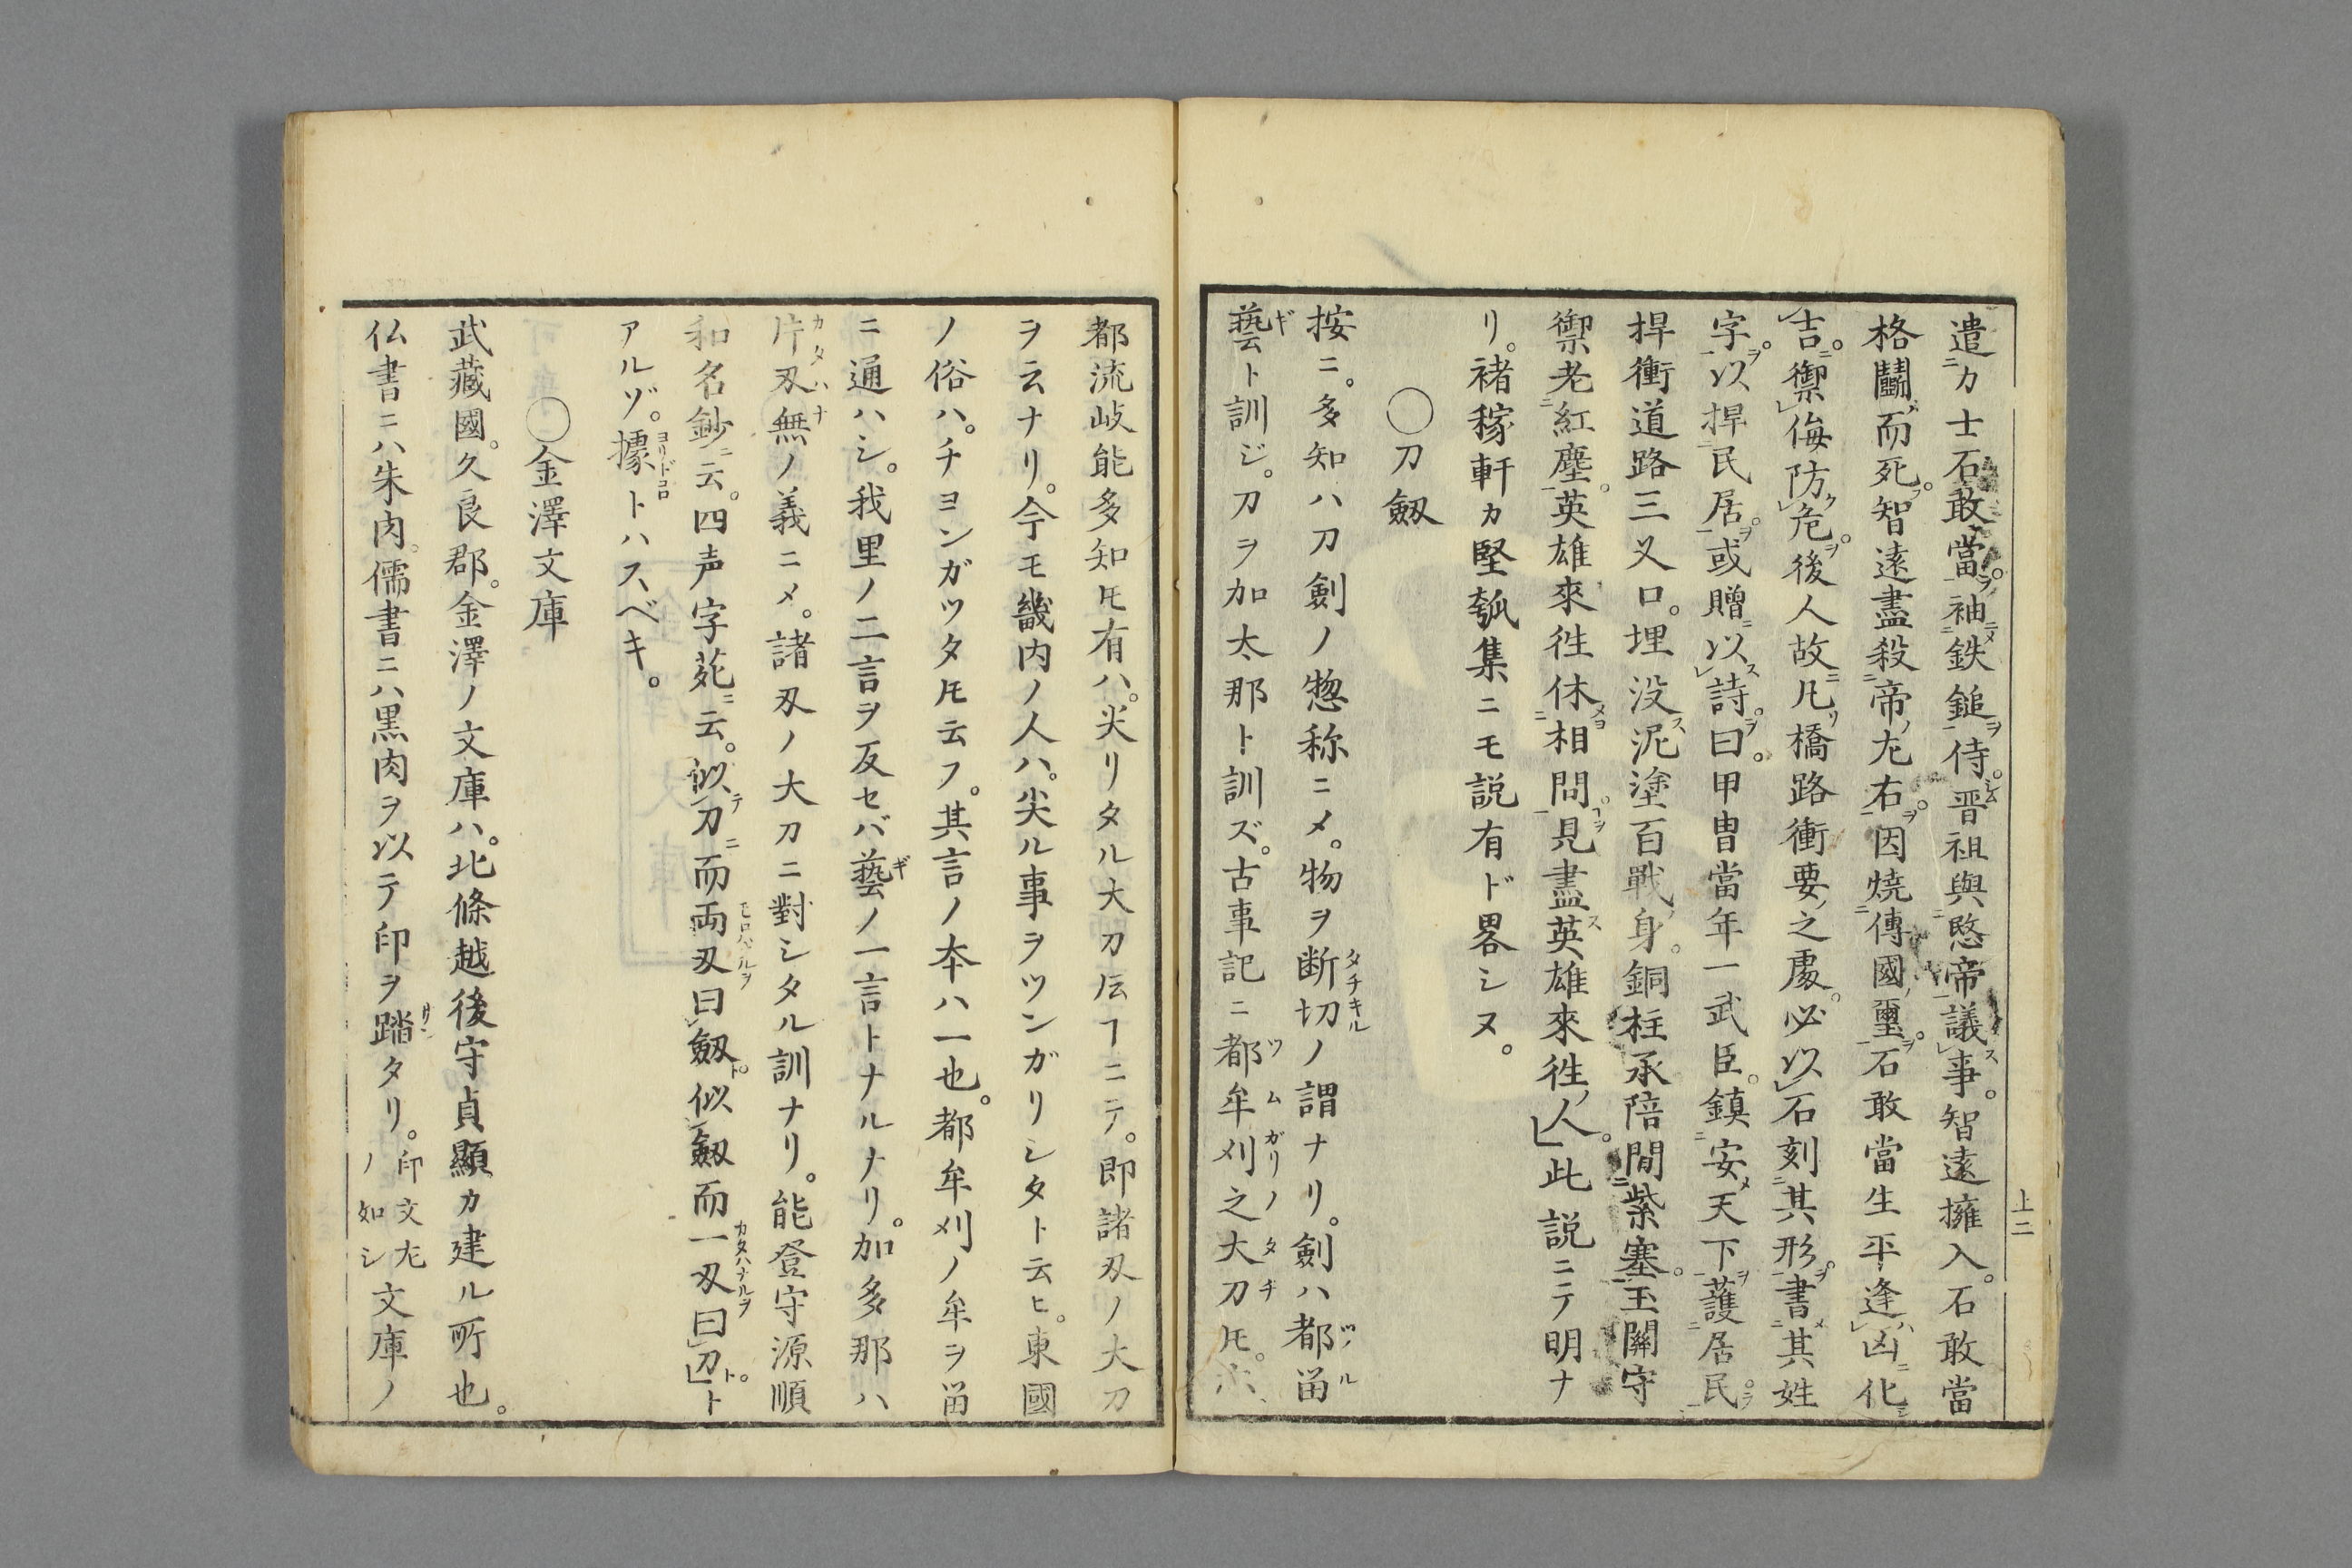 遣力士石敢當袖鉄鎚侍晋祖與愍帝議事。智遠擁入。石敢當
格鬪而死。智遠盡殺帝左右。因燒傳國璽。石敢當生平逢凶化
吉。禦侮防危。後人故凡橋路衝要之處。必以石刻其形。書其姓
字。以捍民居。或贈以詩曰。甲冑當年一武臣。鎮安天下護居民。
捍衝道路三义口。埋没泥塗百戰身。銅柱承陪閒紫塞。玉關守
禦老紅塵。英雄來徃休相問。見盡英雄來徃人。」此説ニテ明ナ
リ。褚稼軒カ堅瓠集ニモ説有ド畧シヌ。
○刀劔
按ニ。多知ハ刀劍ノ惣称ニメ。物ヲ断切ノ謂ナリ。劍ハ都畄
藝ト訓ジ。刀ヲ加太那ト訓ズ。古事記ニ都牟刈之大刀ㇳモ。
上二
都流岐能多知ㇳモ有ハ。尖リタル大刀云ヿニテ。即諸刄ノ大刀
ヲ云ナリ。今モ畿内ノ人ハ。尖ル事ヲツンガリシタト云ヒ。東國
ノ俗ハ。チヨンガツタㇳモ云フ。其言ノ本ハ一也。都牟刈ノ牟ヲ畄
ニ通ハシ。我里ノ二言ヲ反セバ藝ノ一言トナルナリ。加多那ハ
片刄無ノ義ニメ。諸刄ノ大刀ニ對シタル訓ナリ。能登守源順
和名鈔ニ云。四声字苑ニ云。似刀而両刄曰劔。似劔而一刄曰刀」ト
アルゾ。據トハスベキ。
○金澤文庫
武藏國。久良郡。金澤ノ文庫ハ。北條越後守貞顯カ建ル所也。
仏書ニハ朱肉。儒書ニハ黒肉ヲ以テ印ヲ踏タリ。印文左ノ如シ文庫ノ